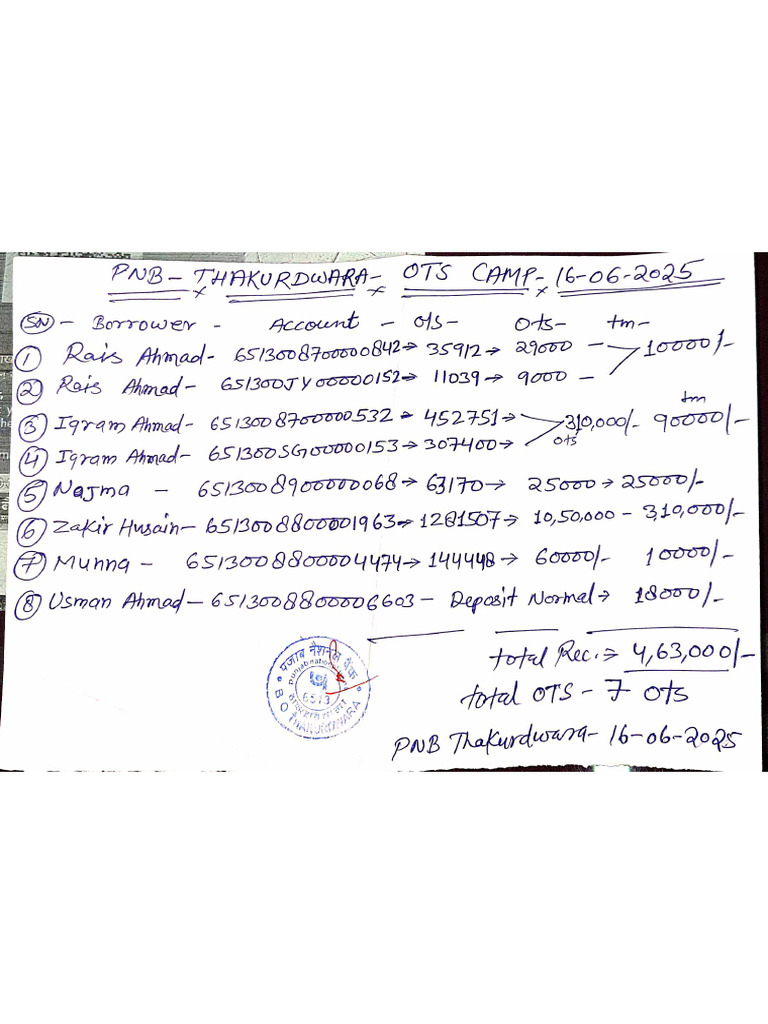 PNB - THAKURDWARA - OTS CAMP - 16-06-2025
SN - Borrower - Account - o/s - Ots - tm -
1 Rais Ahmad - 6513008700000842 → 35912 → 29000 - 10000/-
2 Rais Ahmad - 651300JY00000152 → 11039 → 9000 -
3 Iqram Ahmad - 6513008700000532 → 452751 → 310,000/- ots tm 90000/-
4 Iqram Ahmad - 651300SG00000153 → 307400 →
5 Najma - 6513008900000068 → 63170 → 25000 → 25000/-
6 Zakir Husain - 6513008800001963 → 1281507 → 10,50,000 - 3,10,000/-
7 Munna - 6513008800004474 → 144448 → 60000/- 10000/-
8 Usman Ahmad - 6513008800006603 - Deposit Normal → 18000/-
total Rec. → 4,63,000/-
total OTS - 7 ots
PNB Thakurdwara - 16-06-2025
पंजाब नैशनल बैंक
punjab national
6513
B O THAKURDWARA